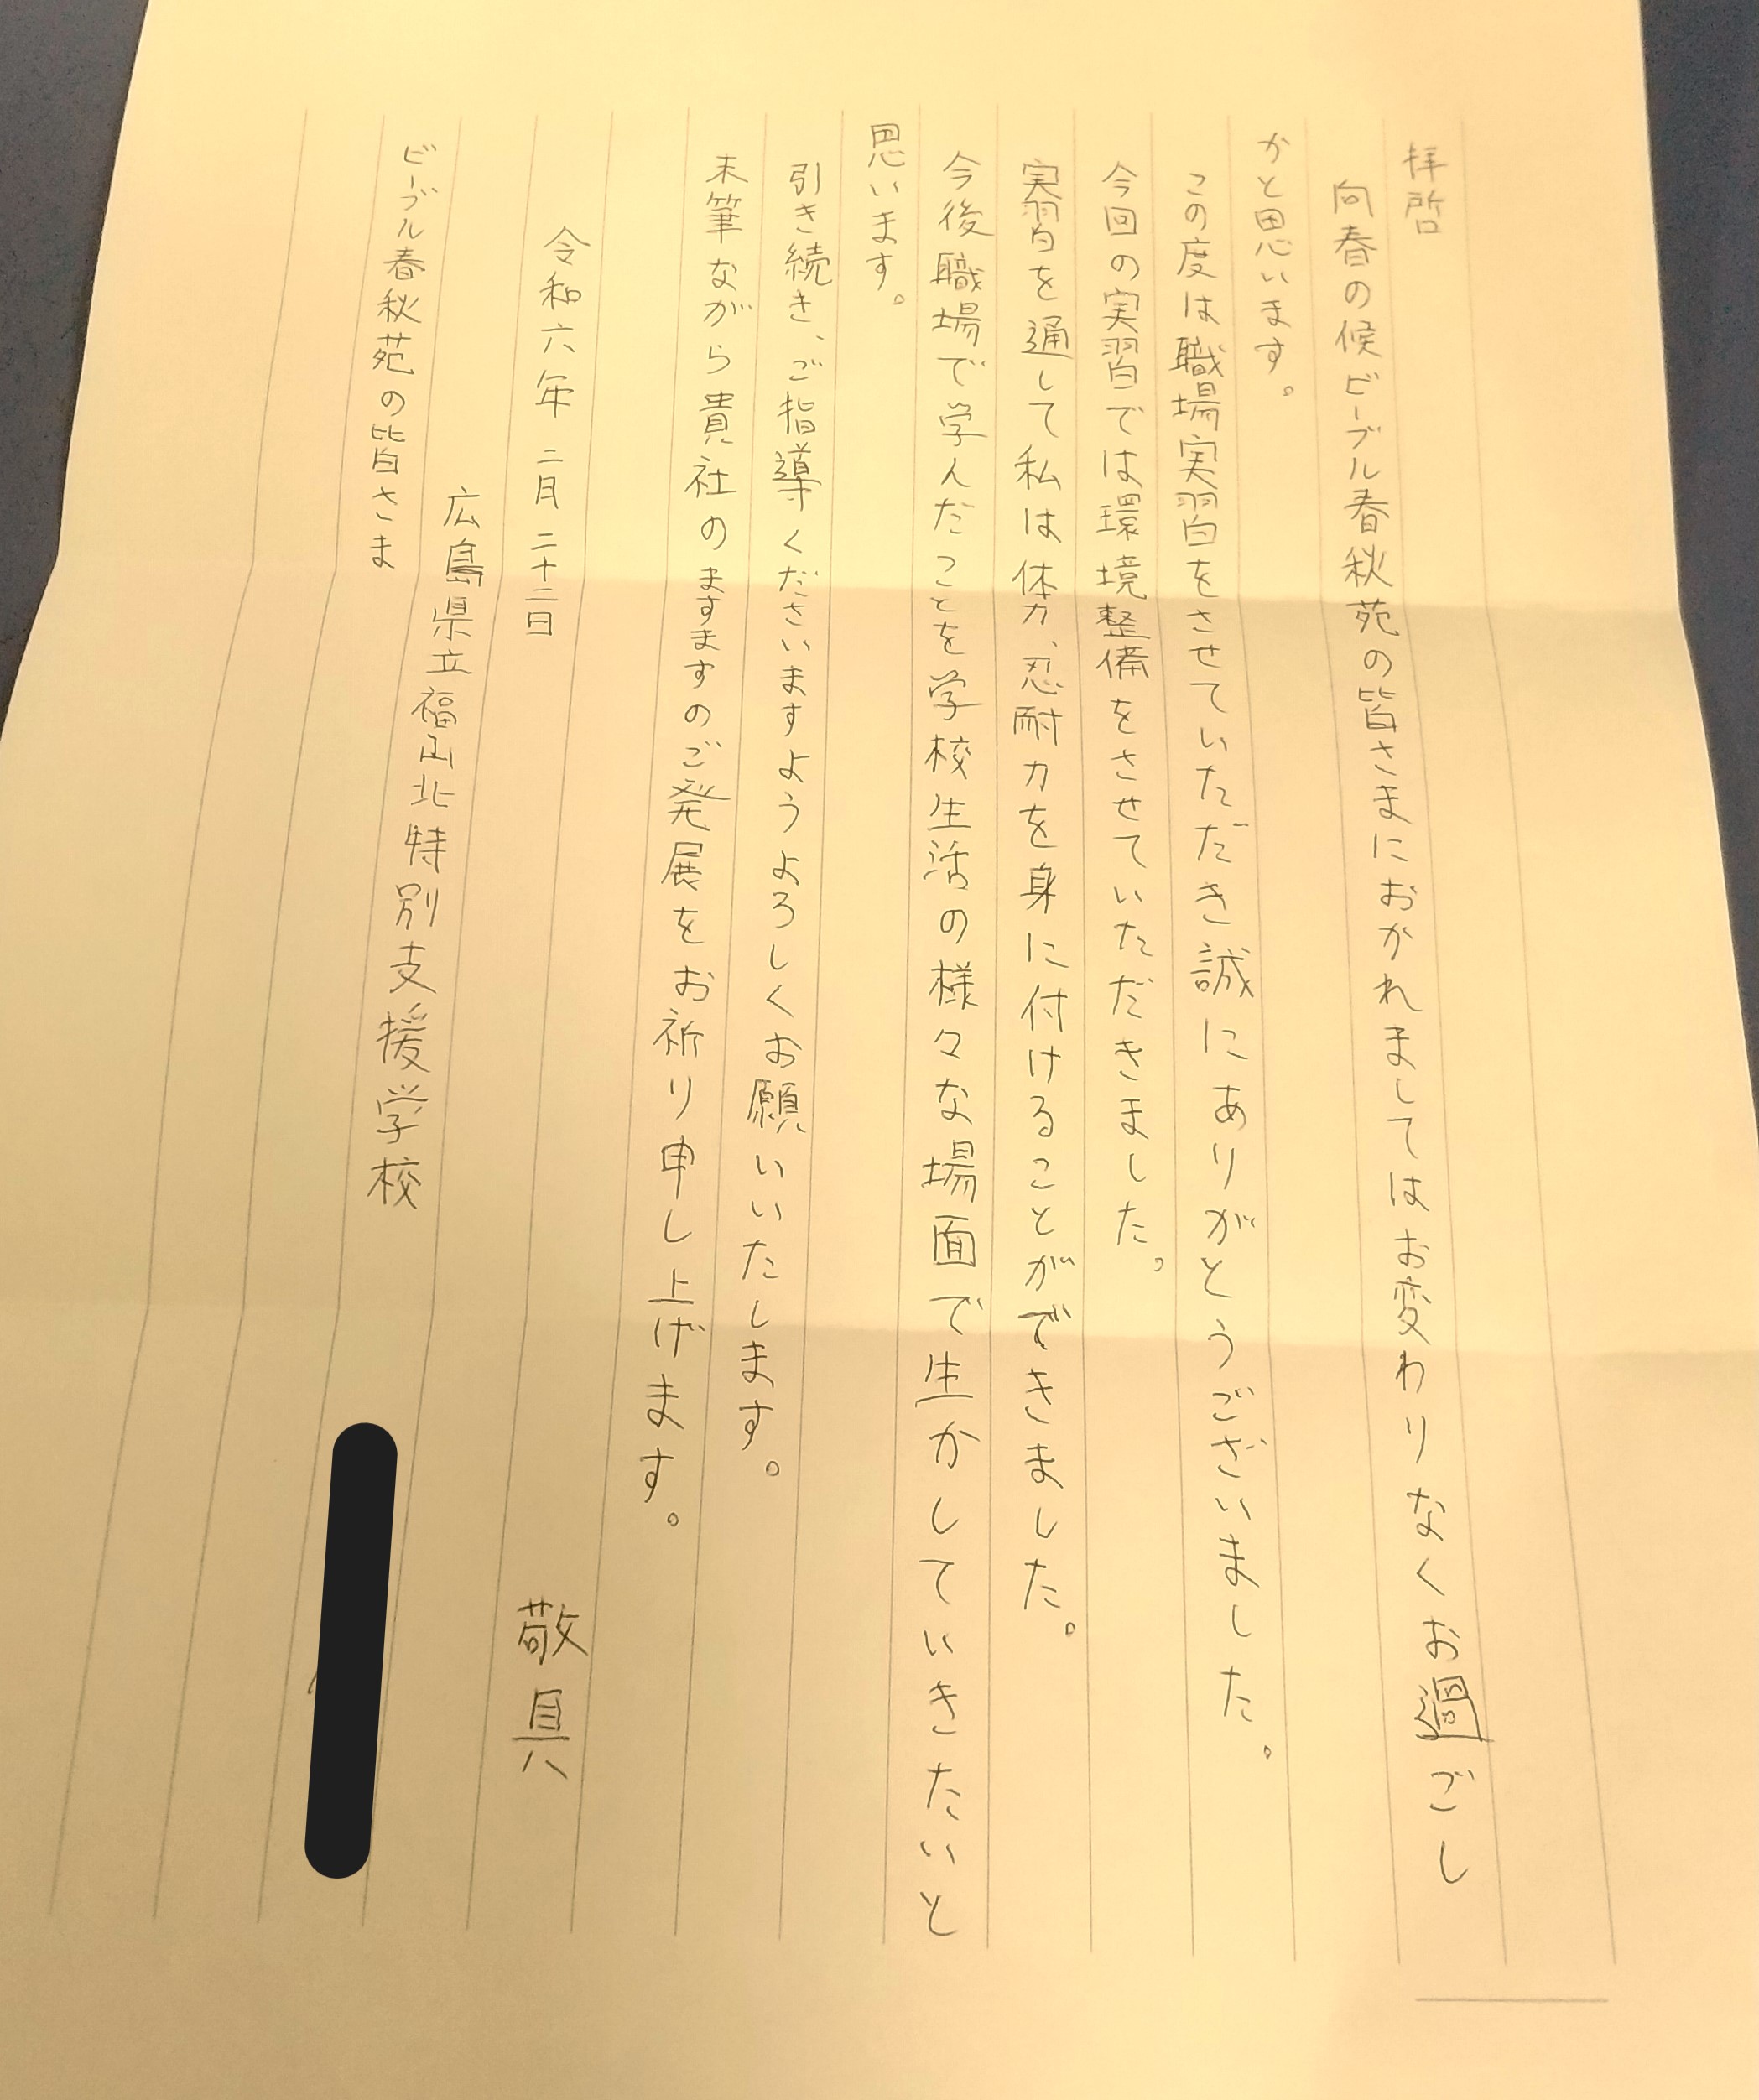 拝啓
向春の候ビーブル春秋苑の皆さまにおかれましてはお変わりなくお過ごし
かと思います。
この度は職場実習をさせていただき誠にありがとうございました。
今回の実習では環境整備をさせていただきました。
実習を通して私は体力、忍耐力を身に付けることができました。
今後職場で学んだことを学校生活の様々な場面で生かしていきたいと
思います。
引き続き、ご指導くださいますようよろしくお願いいたします。
末筆ながら貴社のますますのご発展をお祈り申し上げます。
敬具
令和六年二月二十二日
広島県立福山北特別支援学校
ビーブル春秋苑の皆さま